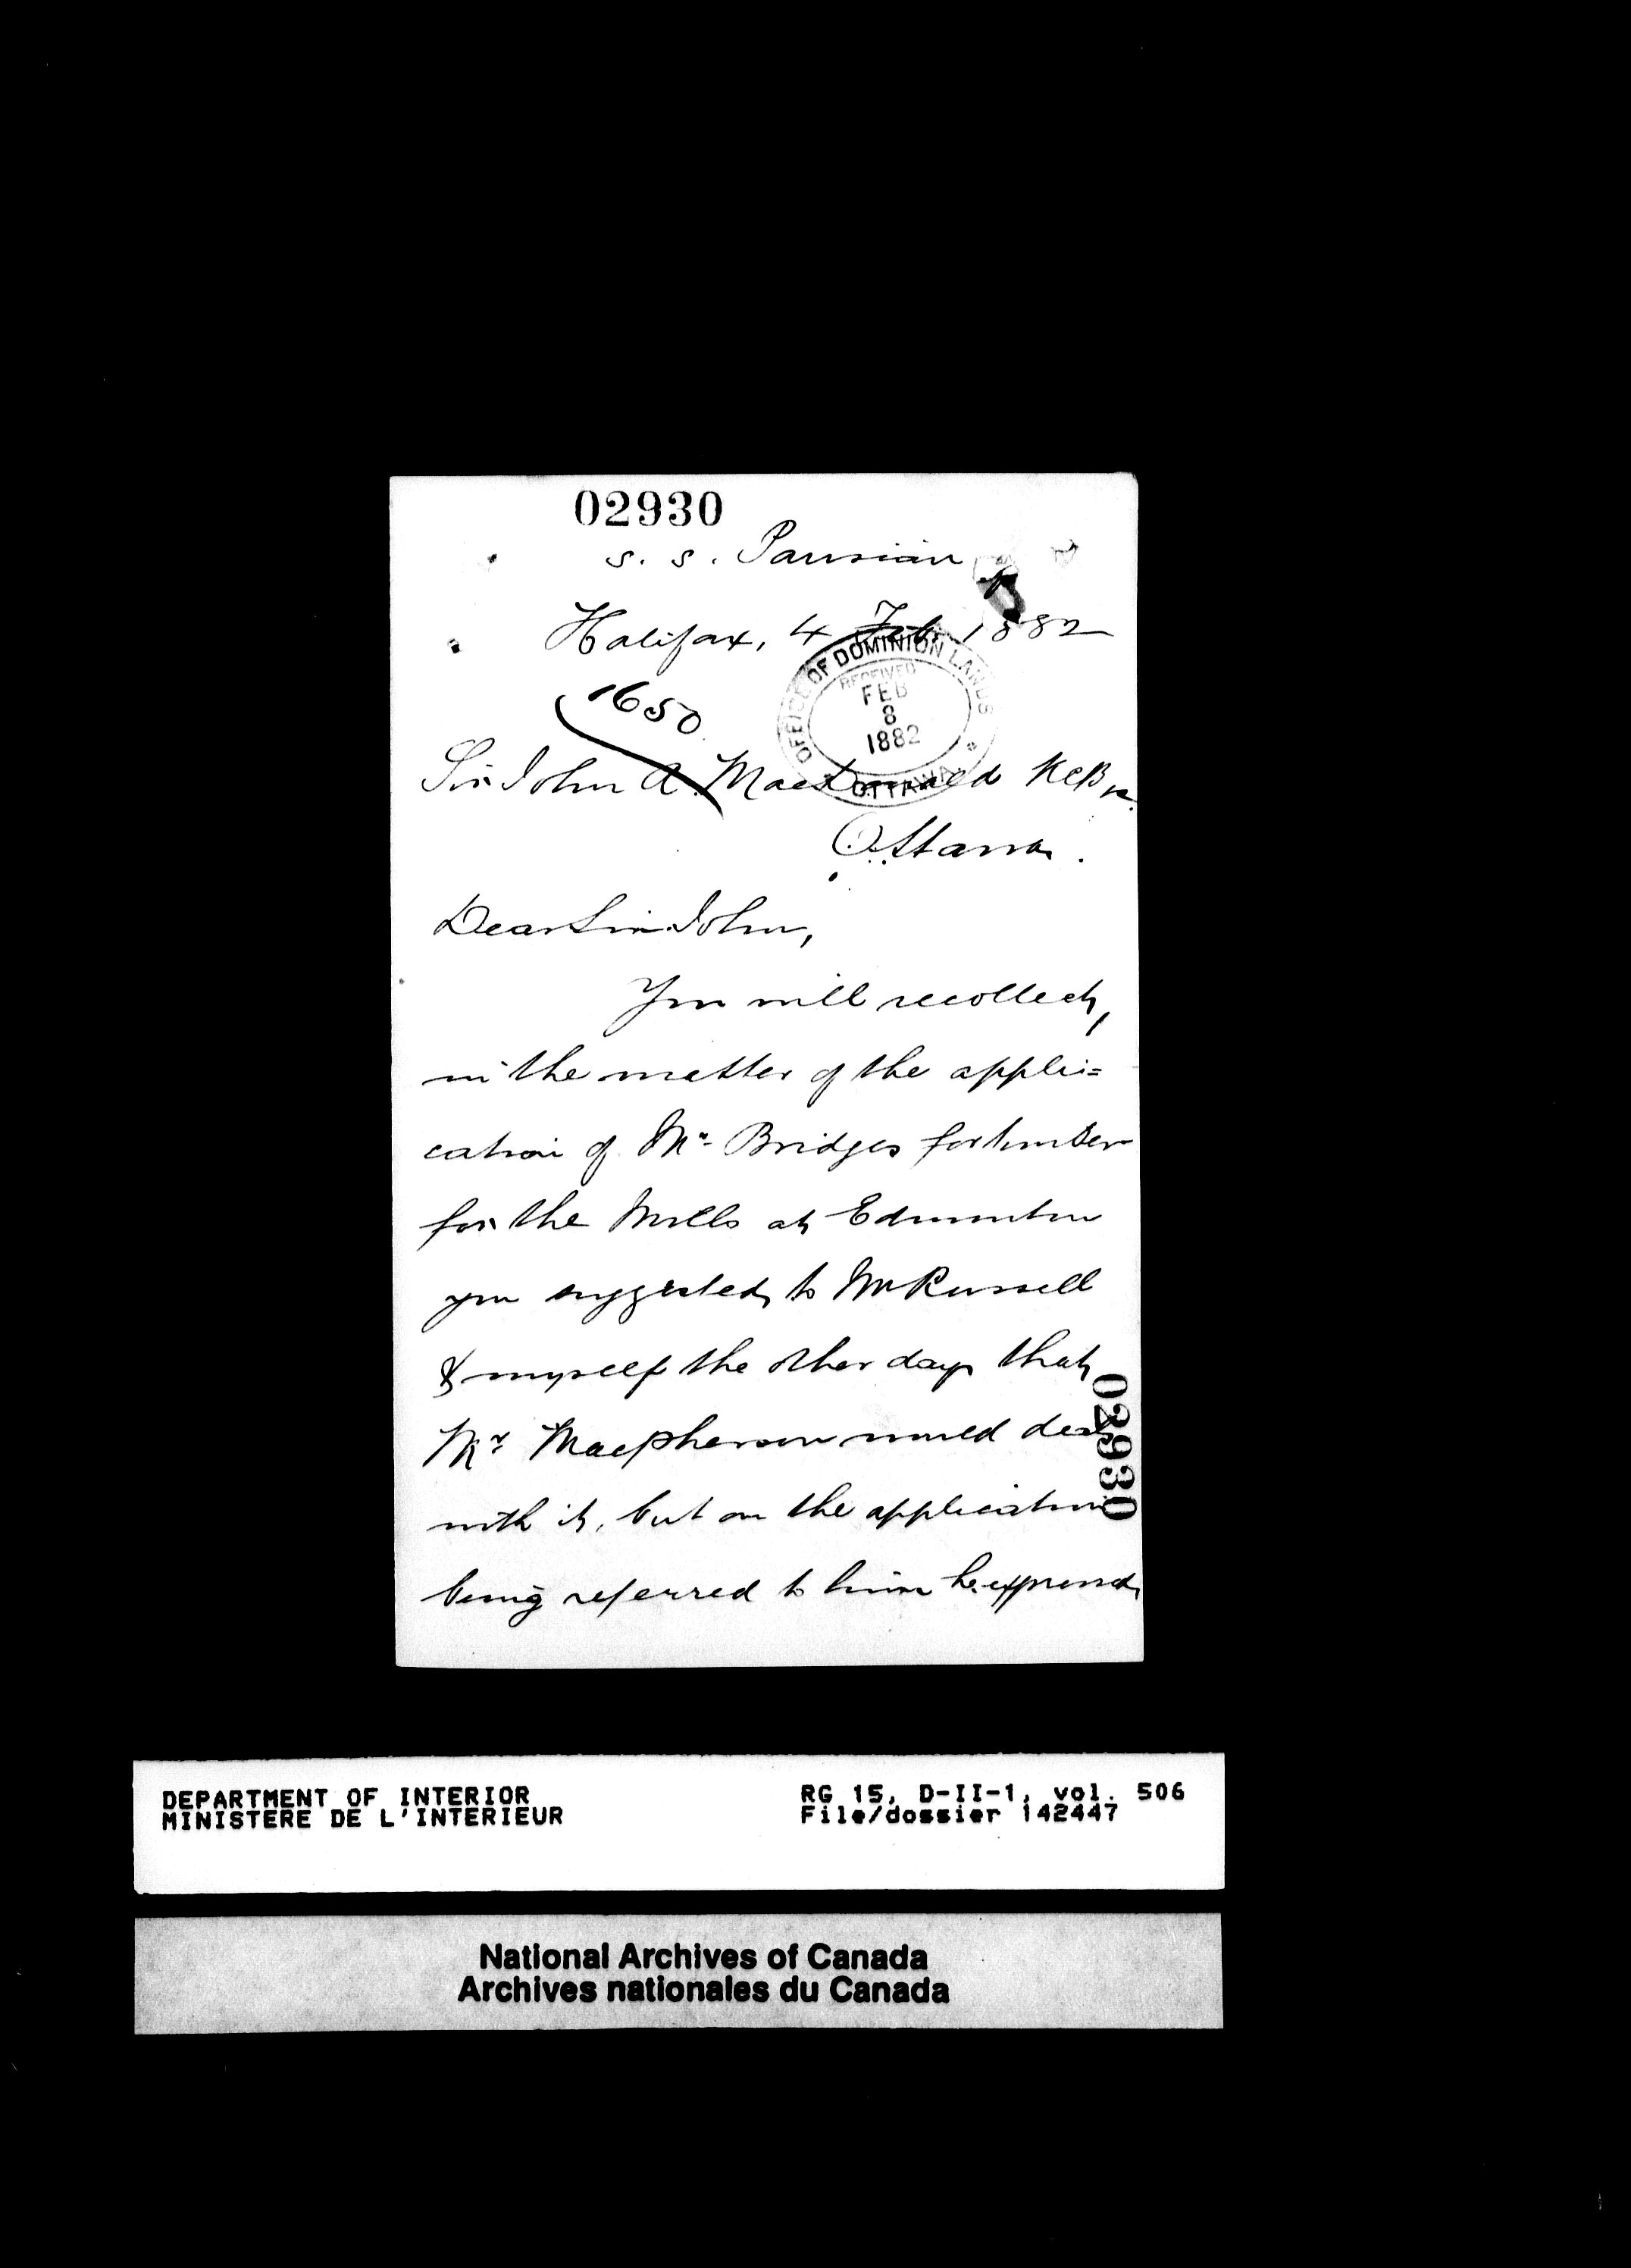 02930
s. s. Parisian
Halifax, 4 Feb. 1882
OFFICE OF DOMINION LANDS
RECEIVED
FEB
8
1882
OTTAWA
1650
Sir John A. Macdonald KCB
Ottawa.
Dear Sir John,
You will recollect,
in the matter of the appli=
cation of Mr. Bridges for timber
for the Mills at Edmonton
you suggested to Mr Russell
& myself the other day that
Mr. Macpherson would deal
with it, but on the application
being referred to him he expressed
02930
DEPARTMENT OF INTERIOR
MINISTERE DE L'INTERIEUR
RG 15, D-II-1, vol. 506
File/dossier 142447
National Archives of Canada
Archives nationales du Canada